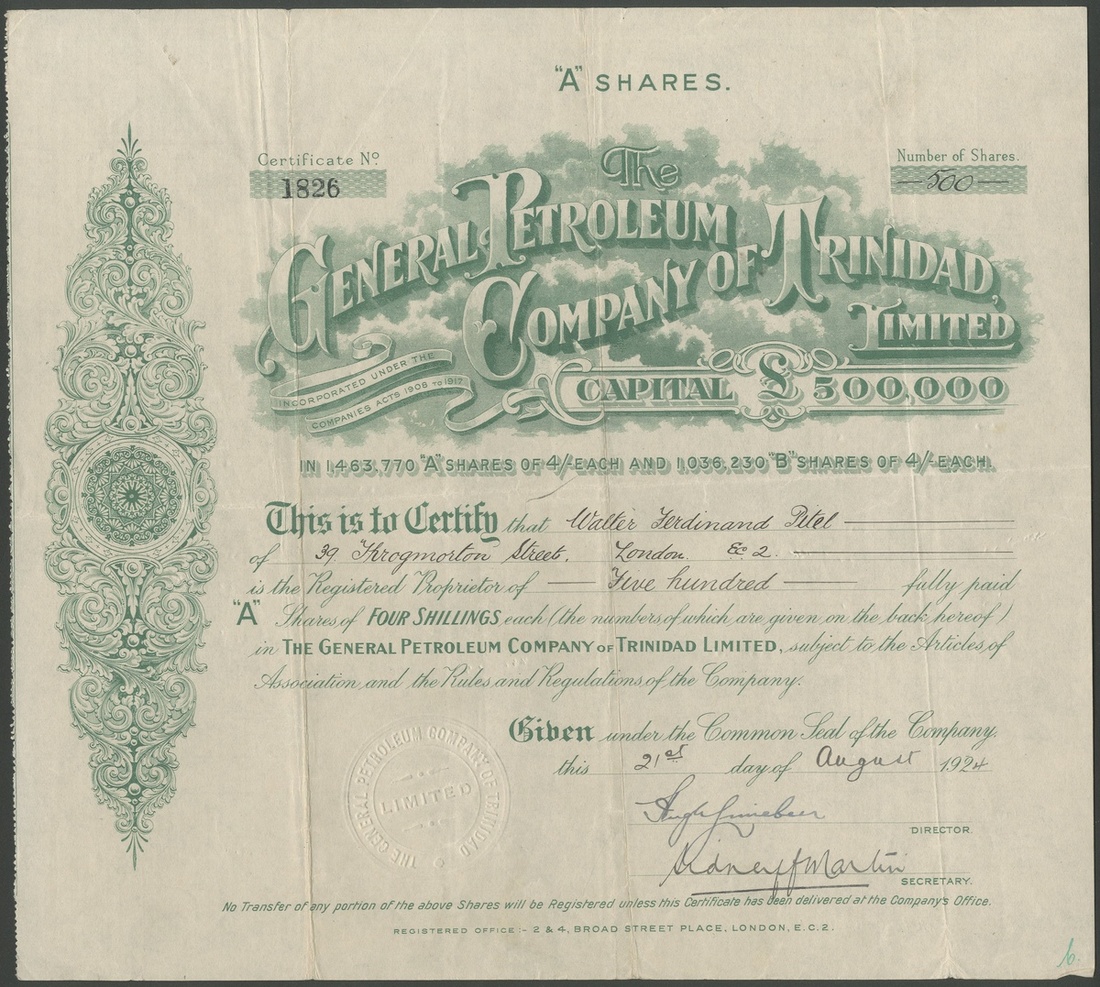 "A" SHARES.
Certificate No.
1826
Number of Shares.
500
The
GENERAL PETROLEUM
COMPANY OF TRINIDAD,
LIMITED
INCORPORATED UNDER THE
COMPANIES ACTS 1908 TO 1917
CAPITAL £500,000
IN 1,463,770 "A" SHARES OF 4/- EACH AND 1,036,230 "B" SHARES OF 4/- EACH.
This is to Certify that Walter Ferdinand Pitel
of 39 Throgmorton Street, London. E.C 2.
is the Registered Proprietor of Five hundred fully paid
"A" Shares of FOUR SHILLINGS each (the numbers of which are given on the back hereof)
in THE GENERAL PETROLEUM COMPANY OF TRINIDAD LIMITED, subject to the Articles of
Association and the Rules and Regulations of the Company.
Given under the Common Seal of the Company.
this 21st day of August 1924
DIRECTOR.
Sidney J Martin
SECRETARY.
THE GENERAL PETROLEUM COMPANY OF TRINIDAD
LIMITED
No Transfer of any portion of the above Shares will be Registered unless this Certificate has been delivered at the Company's Office.
REGISTERED OFFICE :- 2 & 4, BROAD STREET PLACE, LONDON, E.C.2.